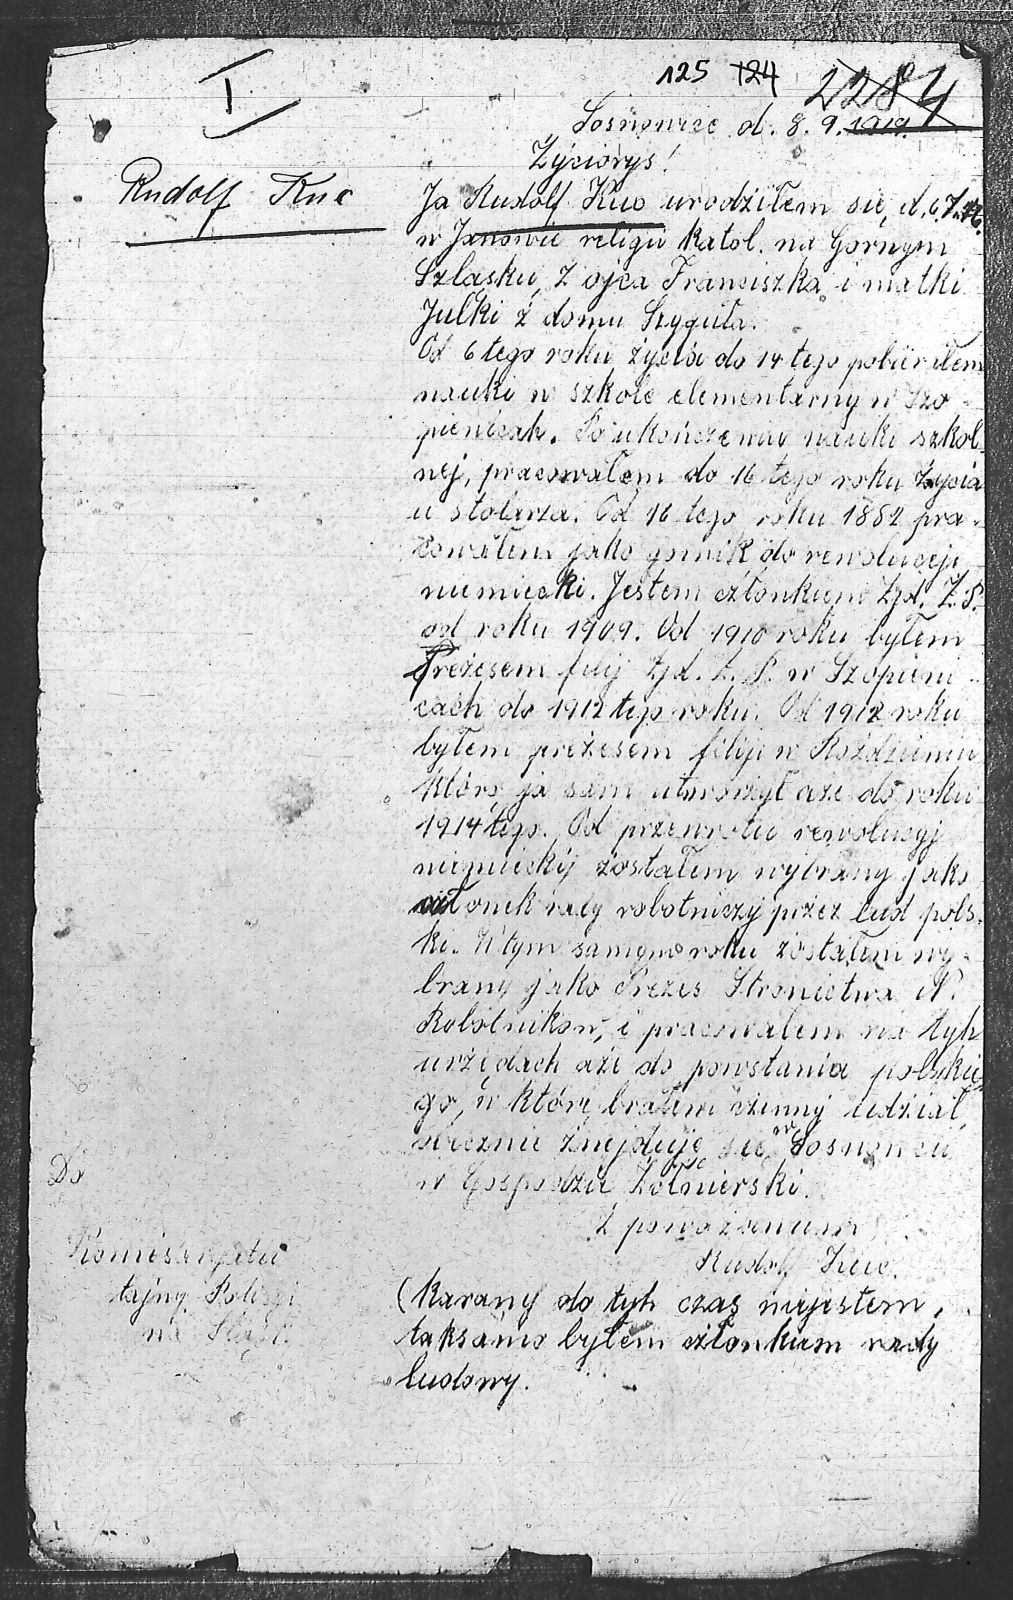 I.
125 124 2284
Sosnowiec d. 8. 9. 1919.
Życiorys!
Rudolf Kuc
Ja Rudolf Kuc urodziłem się, d. 6.7.
w Janowie religii katol. na Gornym
Szląsku, z ojca Franciszka i matki
Julki z domu Szyguła.
Od 6 tego roku życia do 14 tego pobierałem
nauki w szkole elementarny w Szo-
pienicah. Po ukończeniu nauki szkol-
nej, pracowałem do 16 tego roku życia
u stolarza. Od 16 tego roku 1882 pra-
cowałem jako gornik do rewolucyji
niemiecki. Jestem członkiem Zjd. Z. P.
od roku 1909. Od 1910 roku byłem
Prezesem filij Zjd. Z. P. w Szopieni-
cach do 1912 tego roku. Od 1912 roku
byłem prezesem filiji w Roździeniu
którą ja sam utworzył aże do roku
1914 tego. Od przewrotu rewolucyj
niemieckij zostałem wybrany jako
członek rady robotniczyj przez lud pols-
ki. W tym samym roku zostałem wy-
brany jako Prezes Stronictwa N.
Robotników, i pracowałem na tyh
urzędach aże do powstania polskie-
go, w który brałem czynny udział,
obecznie znejduję się w Sosnowcu
w Gospodzie Żołnierski.
Z poważaniem
Rudolf Kuc.
Do
Komisaryatu
tajny Policyi
na Sląsk.
(Karany do tyh czas niejestem,
taksamo byłem członkiem rady
ludowy.